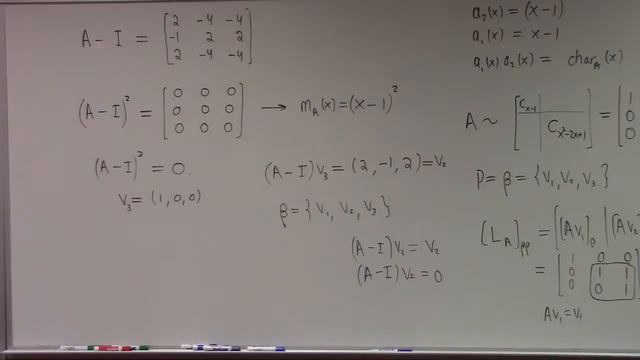 A - I = [ 2 -4 -4
-1 2 2
2 -4 -4 ]
(A-I)² = [ 0 0 0
0 0 0
0 0 0 ] → m_A(x) = (x-1)²
(A-I)² = 0.
v₃ = (1, 0, 0)
(A-I)v₃ = (2, -1, 2) = v₂
β = {v₁, v₂, v₃}
(A-I)v₃ = v₂
(A-I)v₂ = 0
a₂(x) = (x-1)
a₁(x) = x-1
a₁(x) a₂(x) = char_A(x)
A ~ [ C_{x-1}
C_{x²-2x+1} ] = [ 1
0
0
P = β = {v₁, v₂, v₃}
[L_A]_ββ = [[Av₁]_β | [Av₂
= [ 1 0 0
0 1 1
0 0 1 ]
Av₁ = v₁